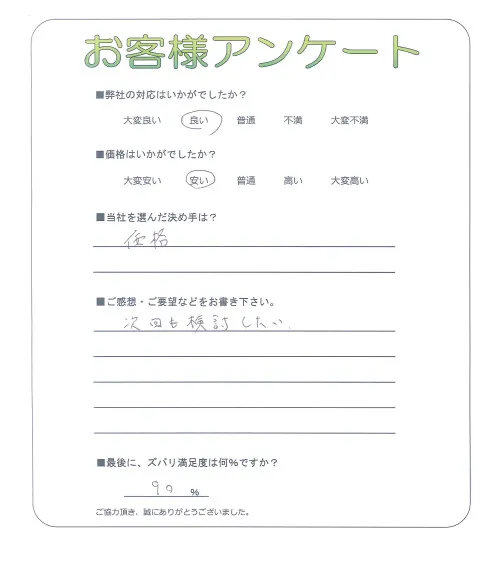 お客様アンケート
■弊社の対応はいかがでしたか？
大変良い 良い 普通 不満 大変不満
■価格はいかがでしたか？
大変安い 安い 普通 高い 大変高い
■当社を選んだ決め手は？
価格
■ご感想・ご要望などをお書き下さい。
次回も検討したい.
■最後に、ズバリ満足度は何％ですか？
90 %
ご協力頂き、誠にありがとうございました。